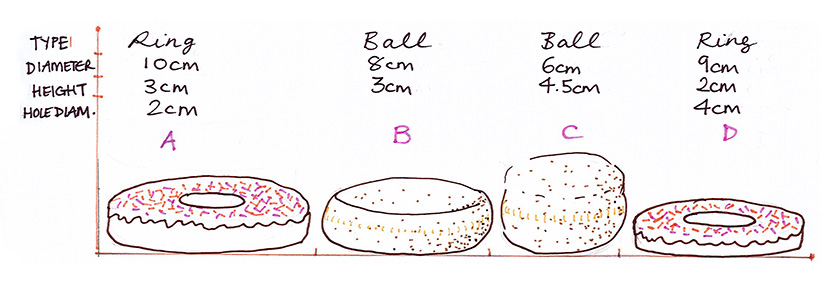 TYPE Ring Ball Ball Ring
DIAMETER 10cm 8cm 6cm 9cm
HEIGHT 3cm 3cm 4.5cm 2cm
HOLE DIAM. 2cm 4cm
A B C D